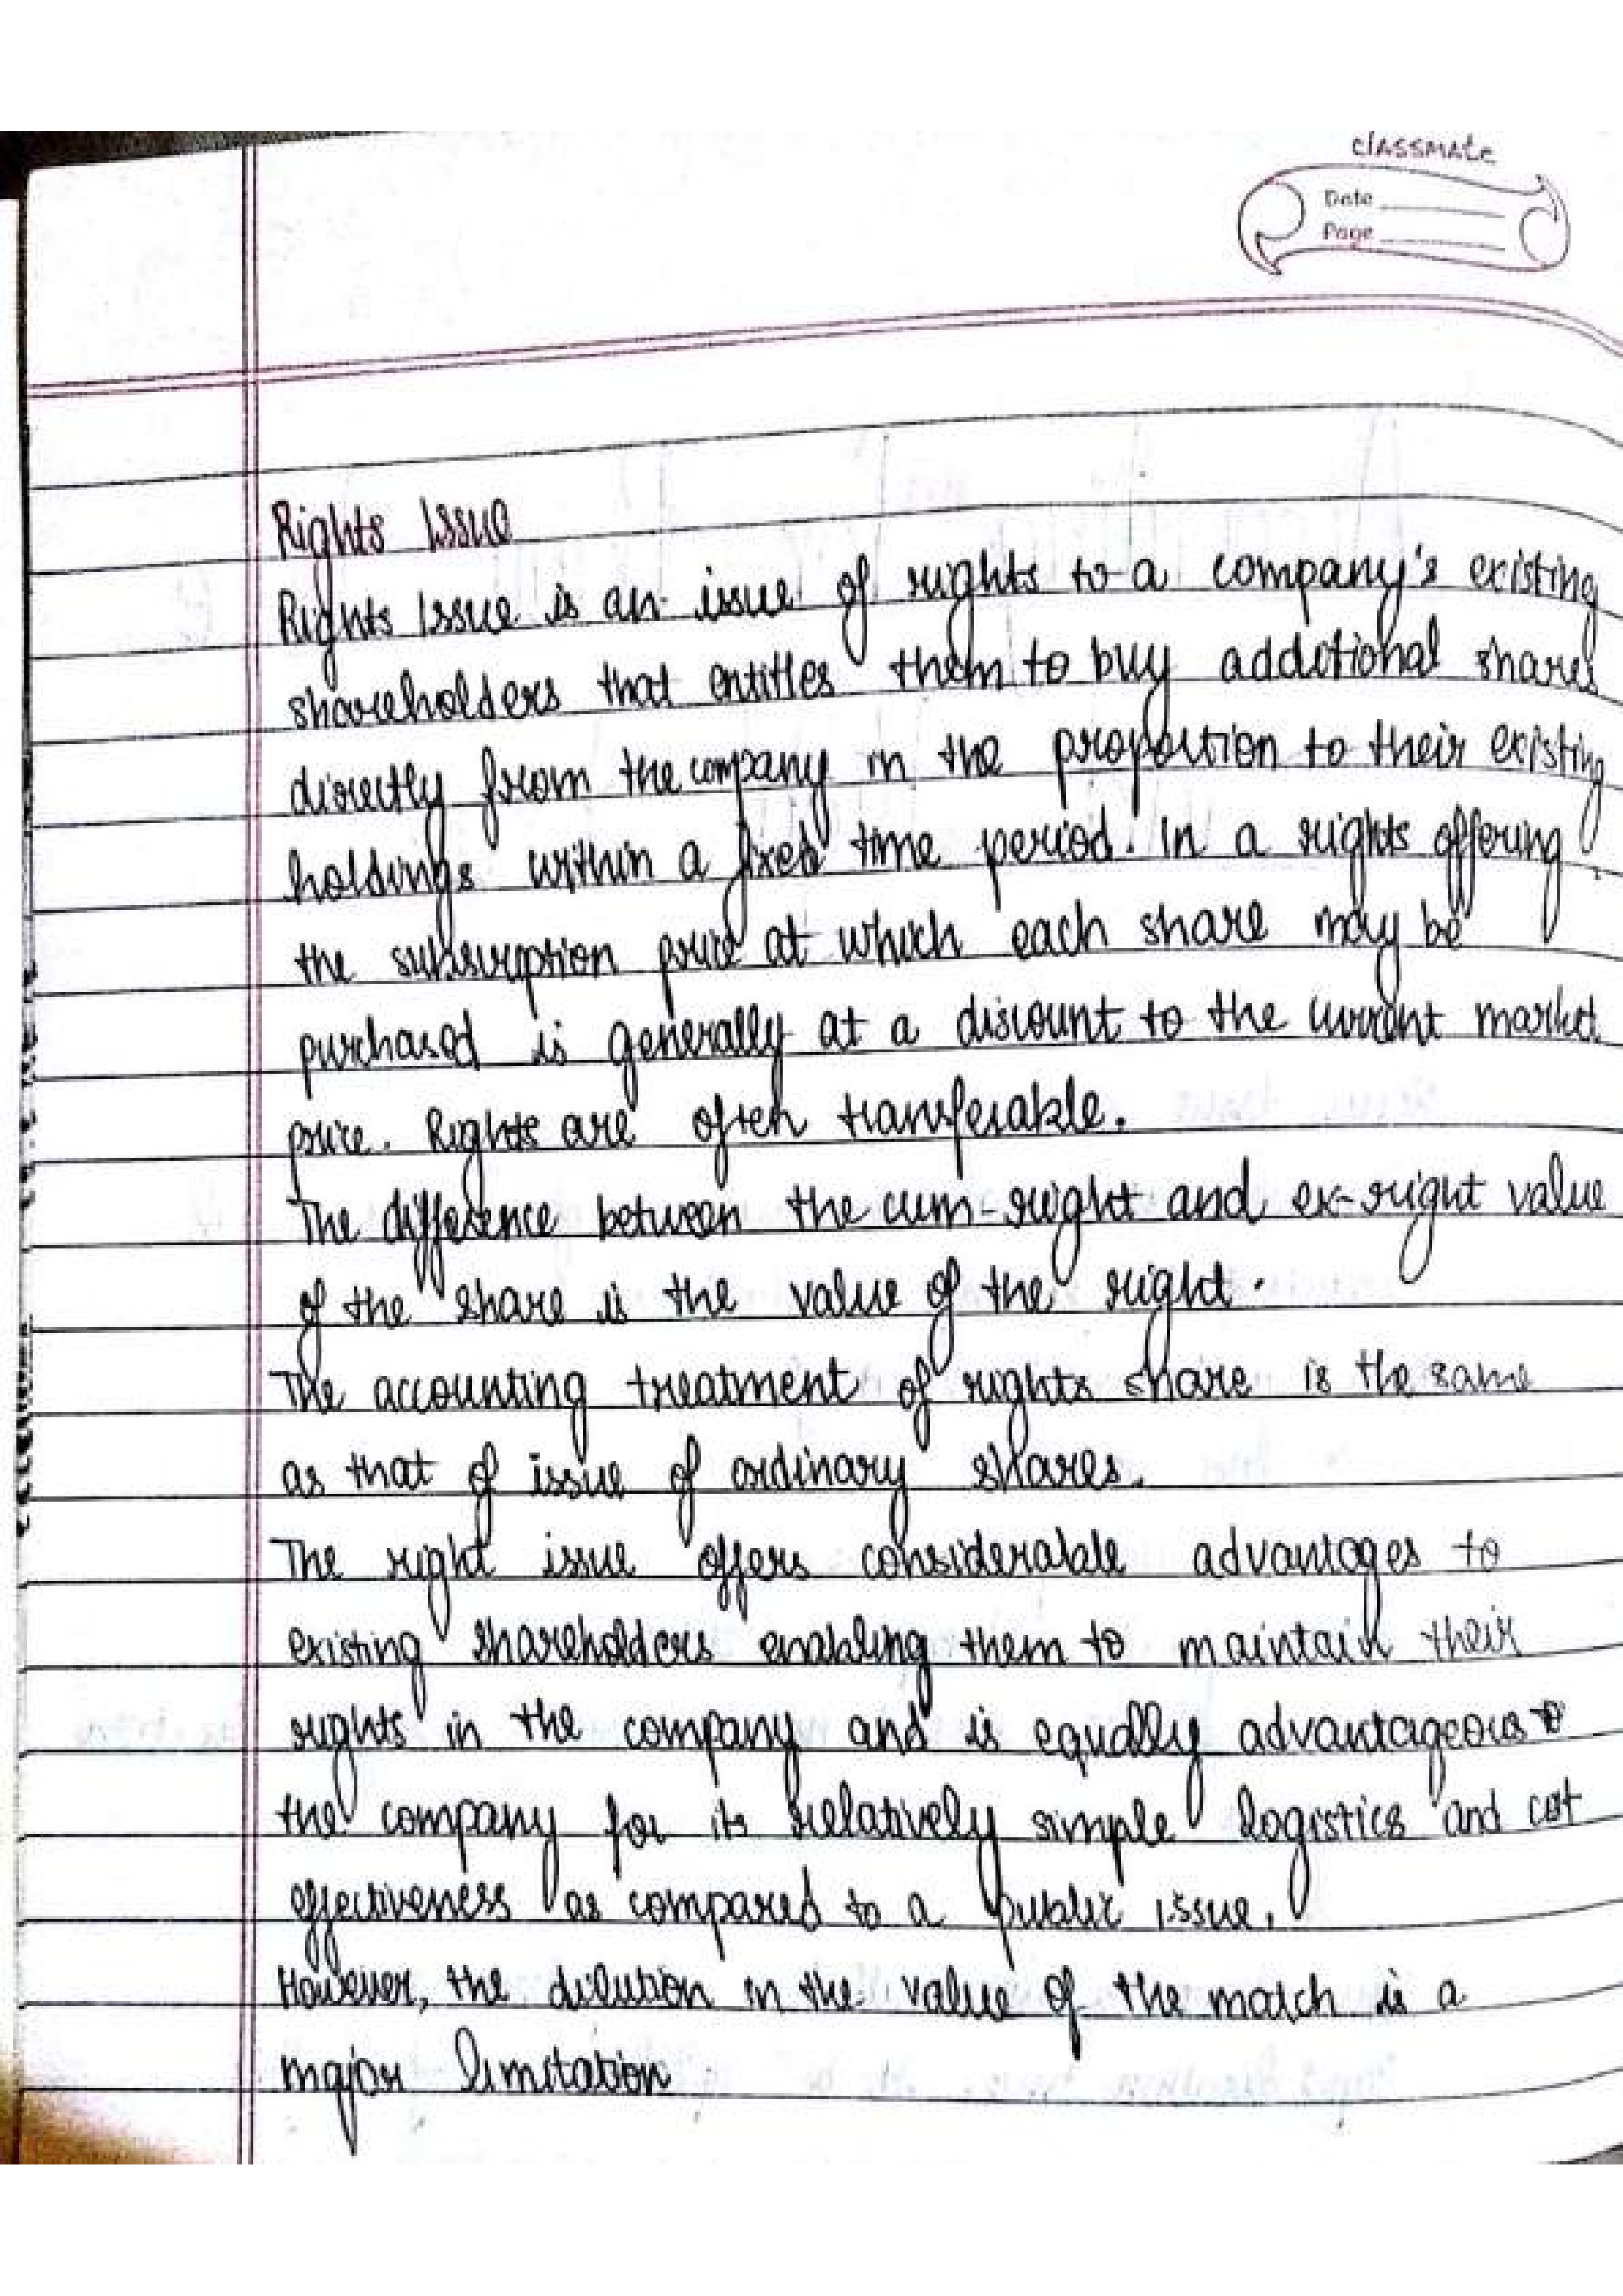 classmate
Date
Page
Rights Issue
Rights Issue is an issue of rights to a company's existing
shareholders that entitles them to buy additional shares
directly from the company in the proportion to their existing
holdings within a fixed time period. In a rights offering,
the subscription price at which each share may be
purchased is generally at a discount to the current market
price. Rights are often transferable.
The difference between the cum-right and ex-right value
of the share is the value of the right.
The accounting treatment of rights share is the same
as that of issue of ordinary shares.
The right issue offers considerable advantages to
existing shareholders enabling them to maintain their
rights in the company and is equally advantageous to
the company for its relatively simple logistics and cost
effectiveness as compared to a public issue.
However, the dilution in the value of the match is a
major limitation